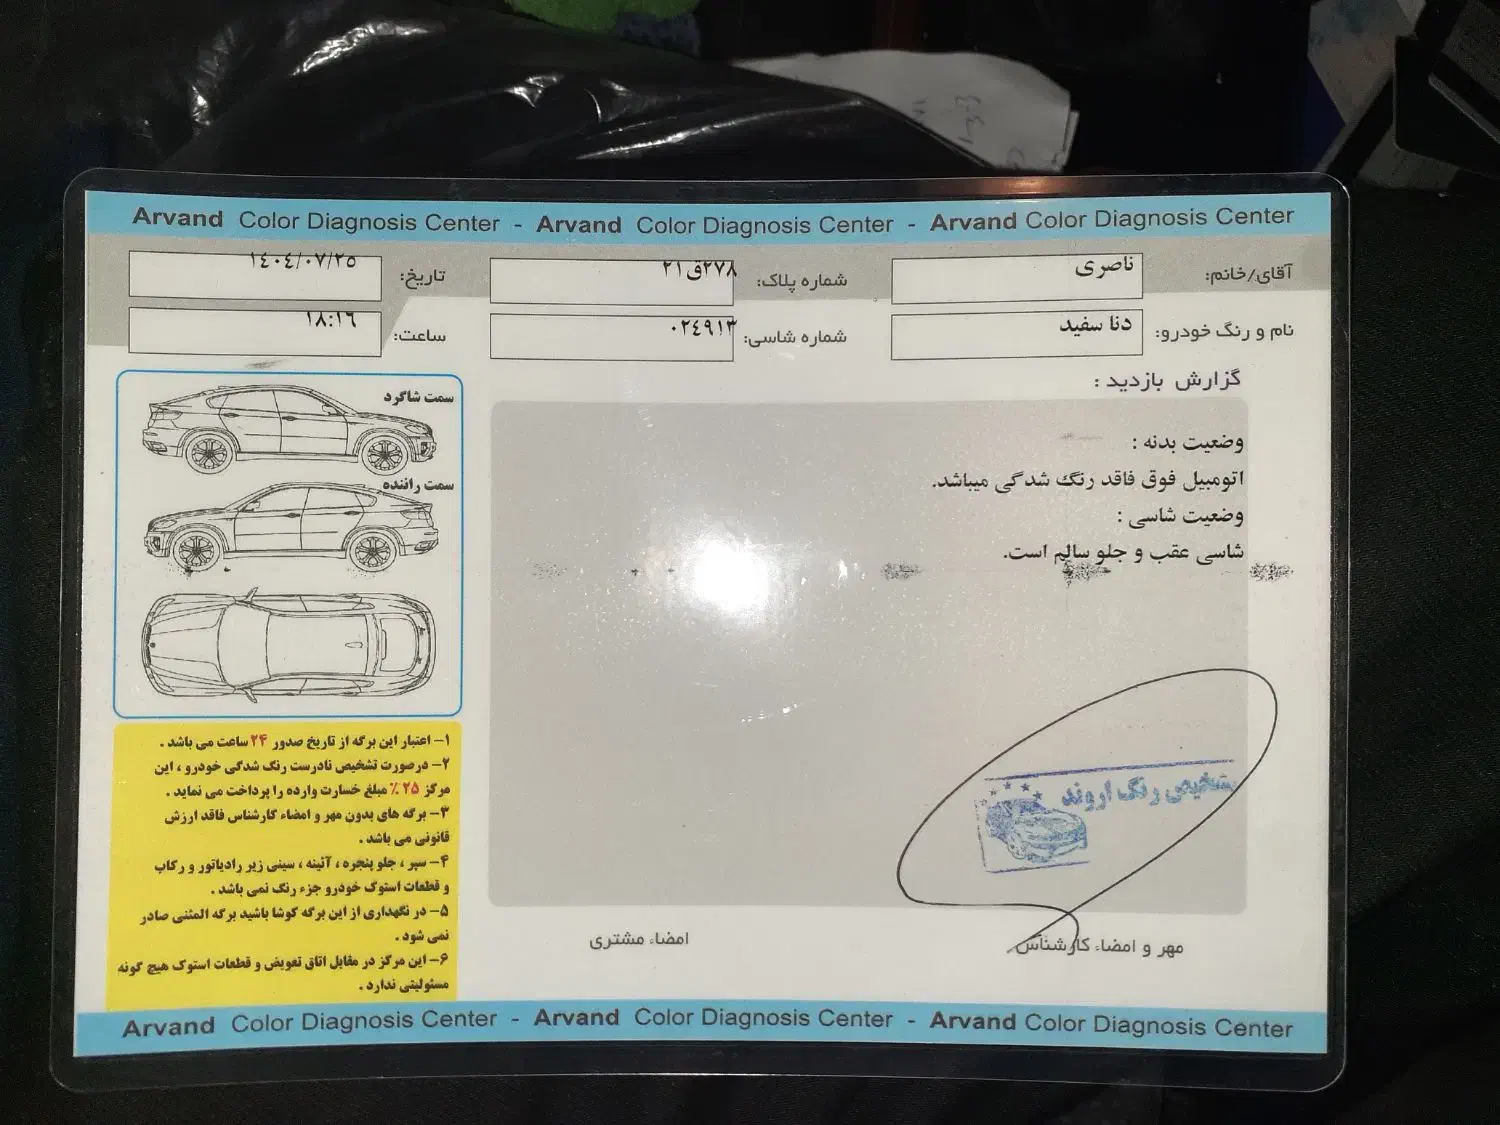 Arvand Color Diagnosis Center - Arvand Color Diagnosis Center - Arvand Color Diagnosis Center
آقای/خانم: ناصری
شماره پلاک: ۲۷۸ق۲۱
تاریخ: ۱۴۰۴/۰۷/۲۵
نام و رنگ خودرو: دنا سفید
شماره شاسی: ۰۲۴۹۱۳
ساعت: ۱۸:۱۶
گزارش بازدید :
وضعیت بدنه :
اتومبیل فوق فاقد رنگ شدگی میباشد.
وضعیت شاسی :
شاسی عقب و جلو سالم است.
سمت شاگرد
سمت راننده
۱- اعتبار این برگه از تاریخ صدور ۲۴ ساعت می باشد .
۲- درصورت تشخیص نادرست رنگ شدگی خودرو ، این
مرکز ۲۵٪ مبلغ خسارت وارده را پرداخت می نماید .
۳- برگه های بدون مهر و امضاء کارشناس فاقد ارزش
قانونی می باشد .
۴- سپر ، جلو پنجره ، آئینه ، سینی زیر رادیاتور و رکاب
و قطعات استوک خودرو جزء رنگ نمی باشد .
۵- در نگهداری از این برگه کوشا باشید برگه المثنی صادر
نمی شود .
۶- این مرکز در مقابل اتاق تعویض و قطعات استوک هیچ گونه
مسئولیتی ندارد .
تشخیص رنگ اروند
مهر و امضاء کارشناس
امضاء مشتری
Arvand Color Diagnosis Center - Arvand Color Diagnosis Center - Arvand Color Diagnosis Center